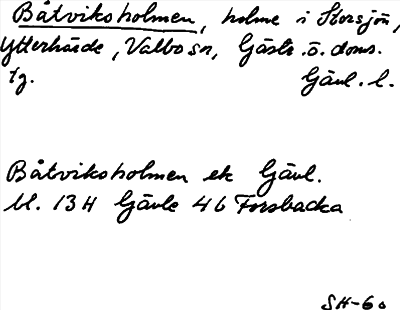 Båtviksholmen, holme i Storsjön,
Ytterhärde, Valbo sn, Gästr. ö. doms.
tg. Gävl. l.
Båtviksholmen ek Gävl.
Bl. 13H Gävle 46 Forsbacka
SH-60